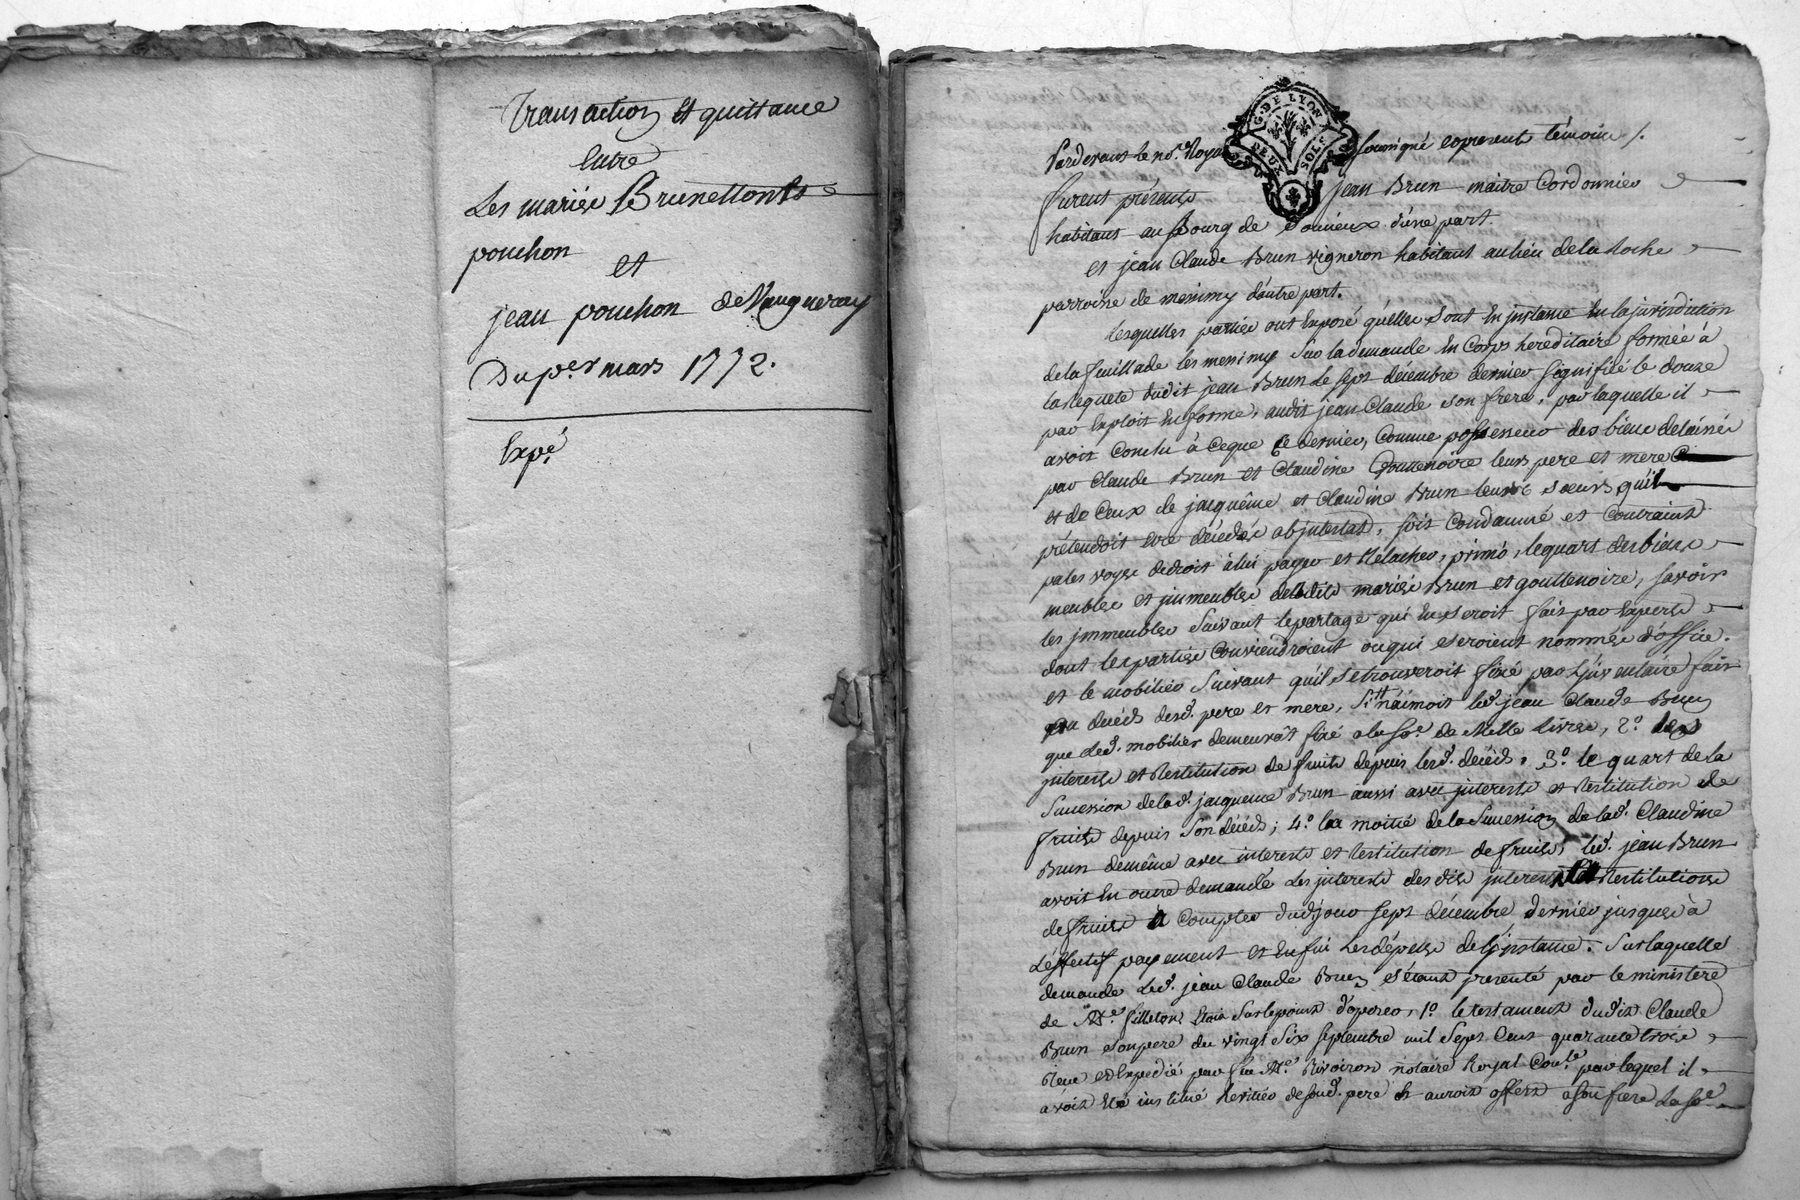 Transaction et quittance
Entre
Les mariés Brun et
pouchon
et
jean pouchon de Vaugneray
Du per mars 1772.
Expé
G. DE LYON
DEUX SOLS
Pardevant le nre. Royal soussigné et present témoins /.
furent présents jean Brun maitre Cordonnier
habitant au Bourg de d'une part
et jean Claude Brun vigneron habitant au lieu de la Roche
parroisse de messimy d'autre part.
lesquelles parties ont Exposé quélles sont En jnstance En la jurisdiction
de la feuillade les messimy sur la demande En Corps héréditaire formée à
la Requete dudit jean Brun le sept décembre dernier signifiée le douze
par Exploit En forme, audit jean Claude son frere, par laquelle il
avoit Conclu à Ceque Ce dernier, Comme possesseur des biens delaissés
par Claude Brun et Claudine Gouttenoire leurs pere et mere
et de Ceux de jacquême et Claudine Brun leurs sœurs quil
prétendoit etre décédés abjntestat, soit Condamné et Contraint
par les voyes de droit à lui payer et Relacher, primò, le quart des biens
meubles et jmmeubles desdits mariés Brun et gouttenoire, savoir
les jmmeubles suivant le partage qui En seroit fait par Experts
dont les parties Conviendroient ou qui seroient nommés d'office.
et le mobilier suivant qu'il se trouveroit fixé par Linventaire fait
au décès desd. pere et mere, si n'aimoit led. jean Claude Brun
que led. mobilier demeurât fixé a la so.e de Mille livres, 2.o les
jnterests et Restitution de fruits depuis lesd. décès, 3.o le quart de la
succession de la d. jacqueme Brun aussi avec jnterests et Restitution de
fruits depuis son décès; 4.o la moitié de la succession de lad. Claudine
Brun de même avec interests et Restitution de fruits, led. jean Brun
avoit En outre demandé Les jnterests des dits jnterests et Restitutions
de fruits à Compter dud. jour sept décembre dernier jusques à
L'effectif payement et Enfin les dépens de l'jnstance. sur laquelle
demande led. jean Claude Brun s'étant presenté par le ministere
de M.e filleton, Etoit sur le point d'oposer, 1.o le testament dudit Claude
Brun son pere du vingt six septembre mil sept cent quarante trois
Reçu et Expedié par feu M.e Rivoiron notaire Royal par lequel il
avoit Eté institué heritier de sond. pere et auroit offert à son frere La so.e